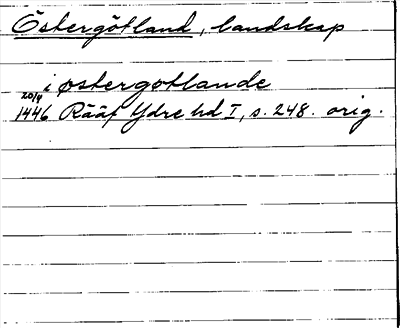 Östergötland, landskap
i østergotlande
20/4 1446 Rääf Ydre hd I, s. 248. orig.